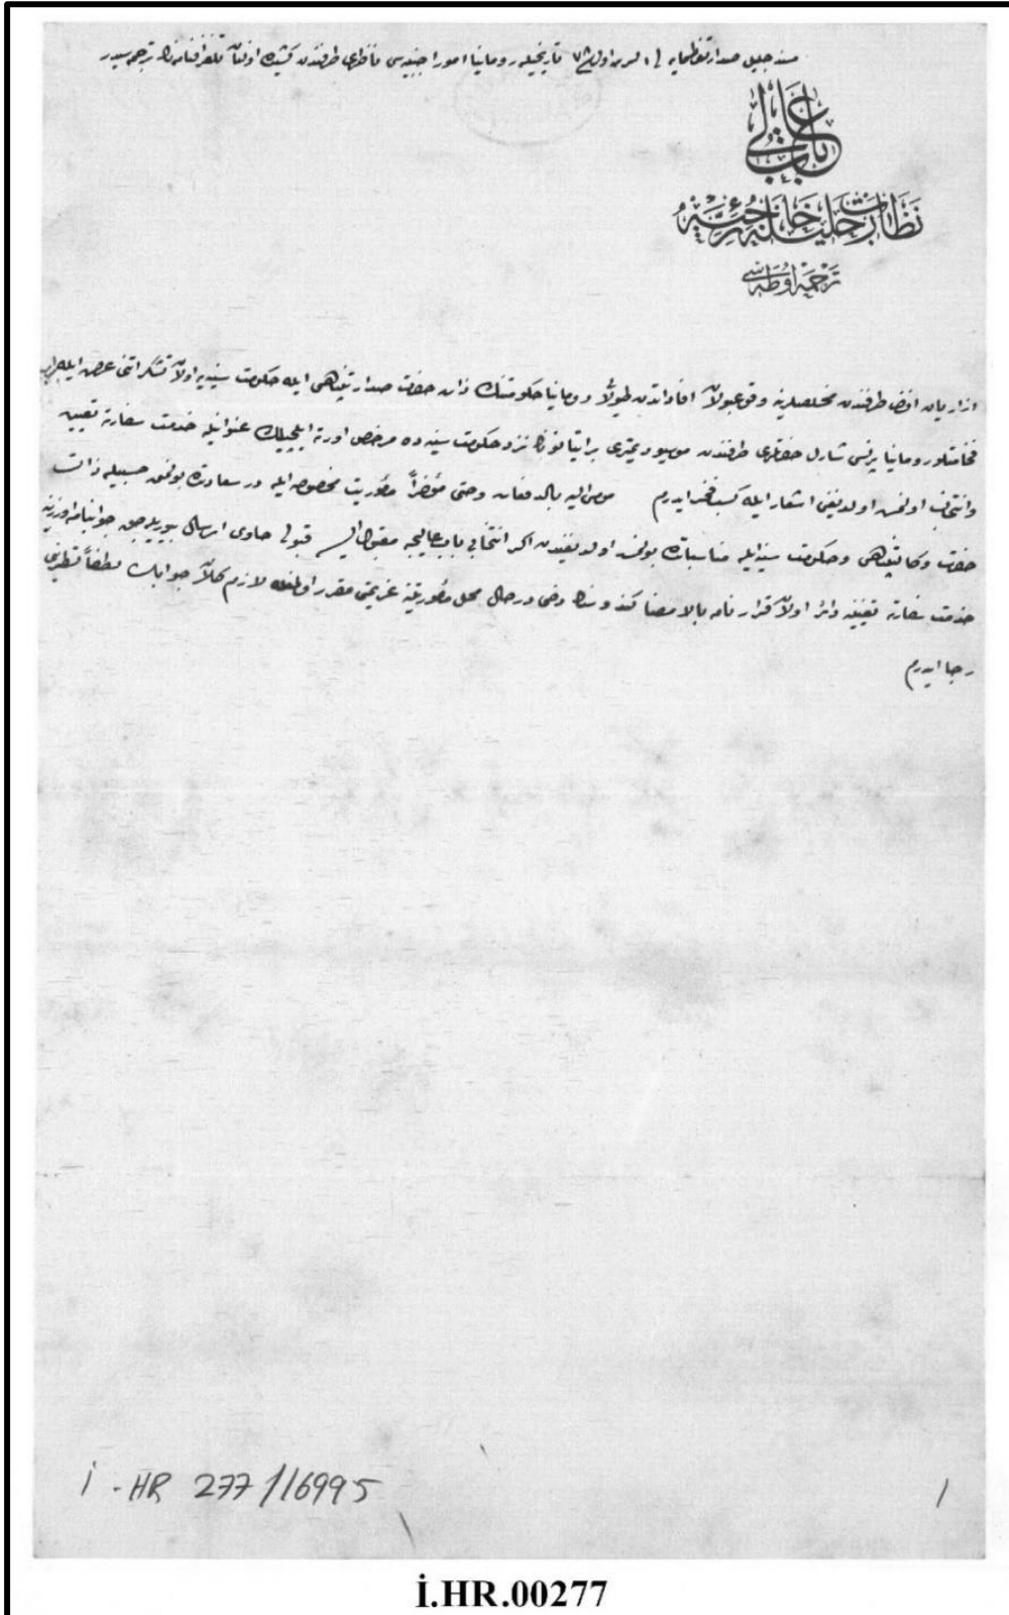 مسند جليل صدارتعظمايه في تاريخيله رومانيا امور اجنبيه سی ناظری طرفندن كشيده اولنان تلغرافنامه نك ترجمه سيدر
باب عالی
نظارت جليله خارجيه
ترجمه اوطه سی
طرفندن وقوعبولان افاداتدن طولايی رومانيا حكومتنك ذات حضرت صدارتپناهی ايله حكومت سنيه يه اولان تشكراتنی عرض ايله برابر
فخامتلو رومانيا پرنسی شارل حضرتلری طرفندن موسيو ديمتری براتيانونك نزد حكومت سنيه ده مرخص اورته ايلچيلك عنوانيله خدمت سفارته تعيين
وانتخاب اولنمش اولديغنی اشعار ايله كسب فخر ايدرم موسی اليه بالدفعات وحتی مؤخراً مأموريت مخصوصه ايله در سعادتده بولنمش حسبيله ذات
حضرت وكالتپناهی وحكومت سنيه ايله مناسباتده بولنمش اولديغندن اكر انتخابی باب عاليجه قبولی حاوی ارسال بيوريله جق جوابنامه اوزرينه
خدمت سفارته تعييننه دائر اولان قرارنامه بالامضا كندوسنك دخی درحال محل مأموريتنه عزيمتی مقرر اولمغله لازم كلان جوابك لطفاً تطيرينی
رجا ايدرم
İ-HR 277/16995
1
İ.HR.00277